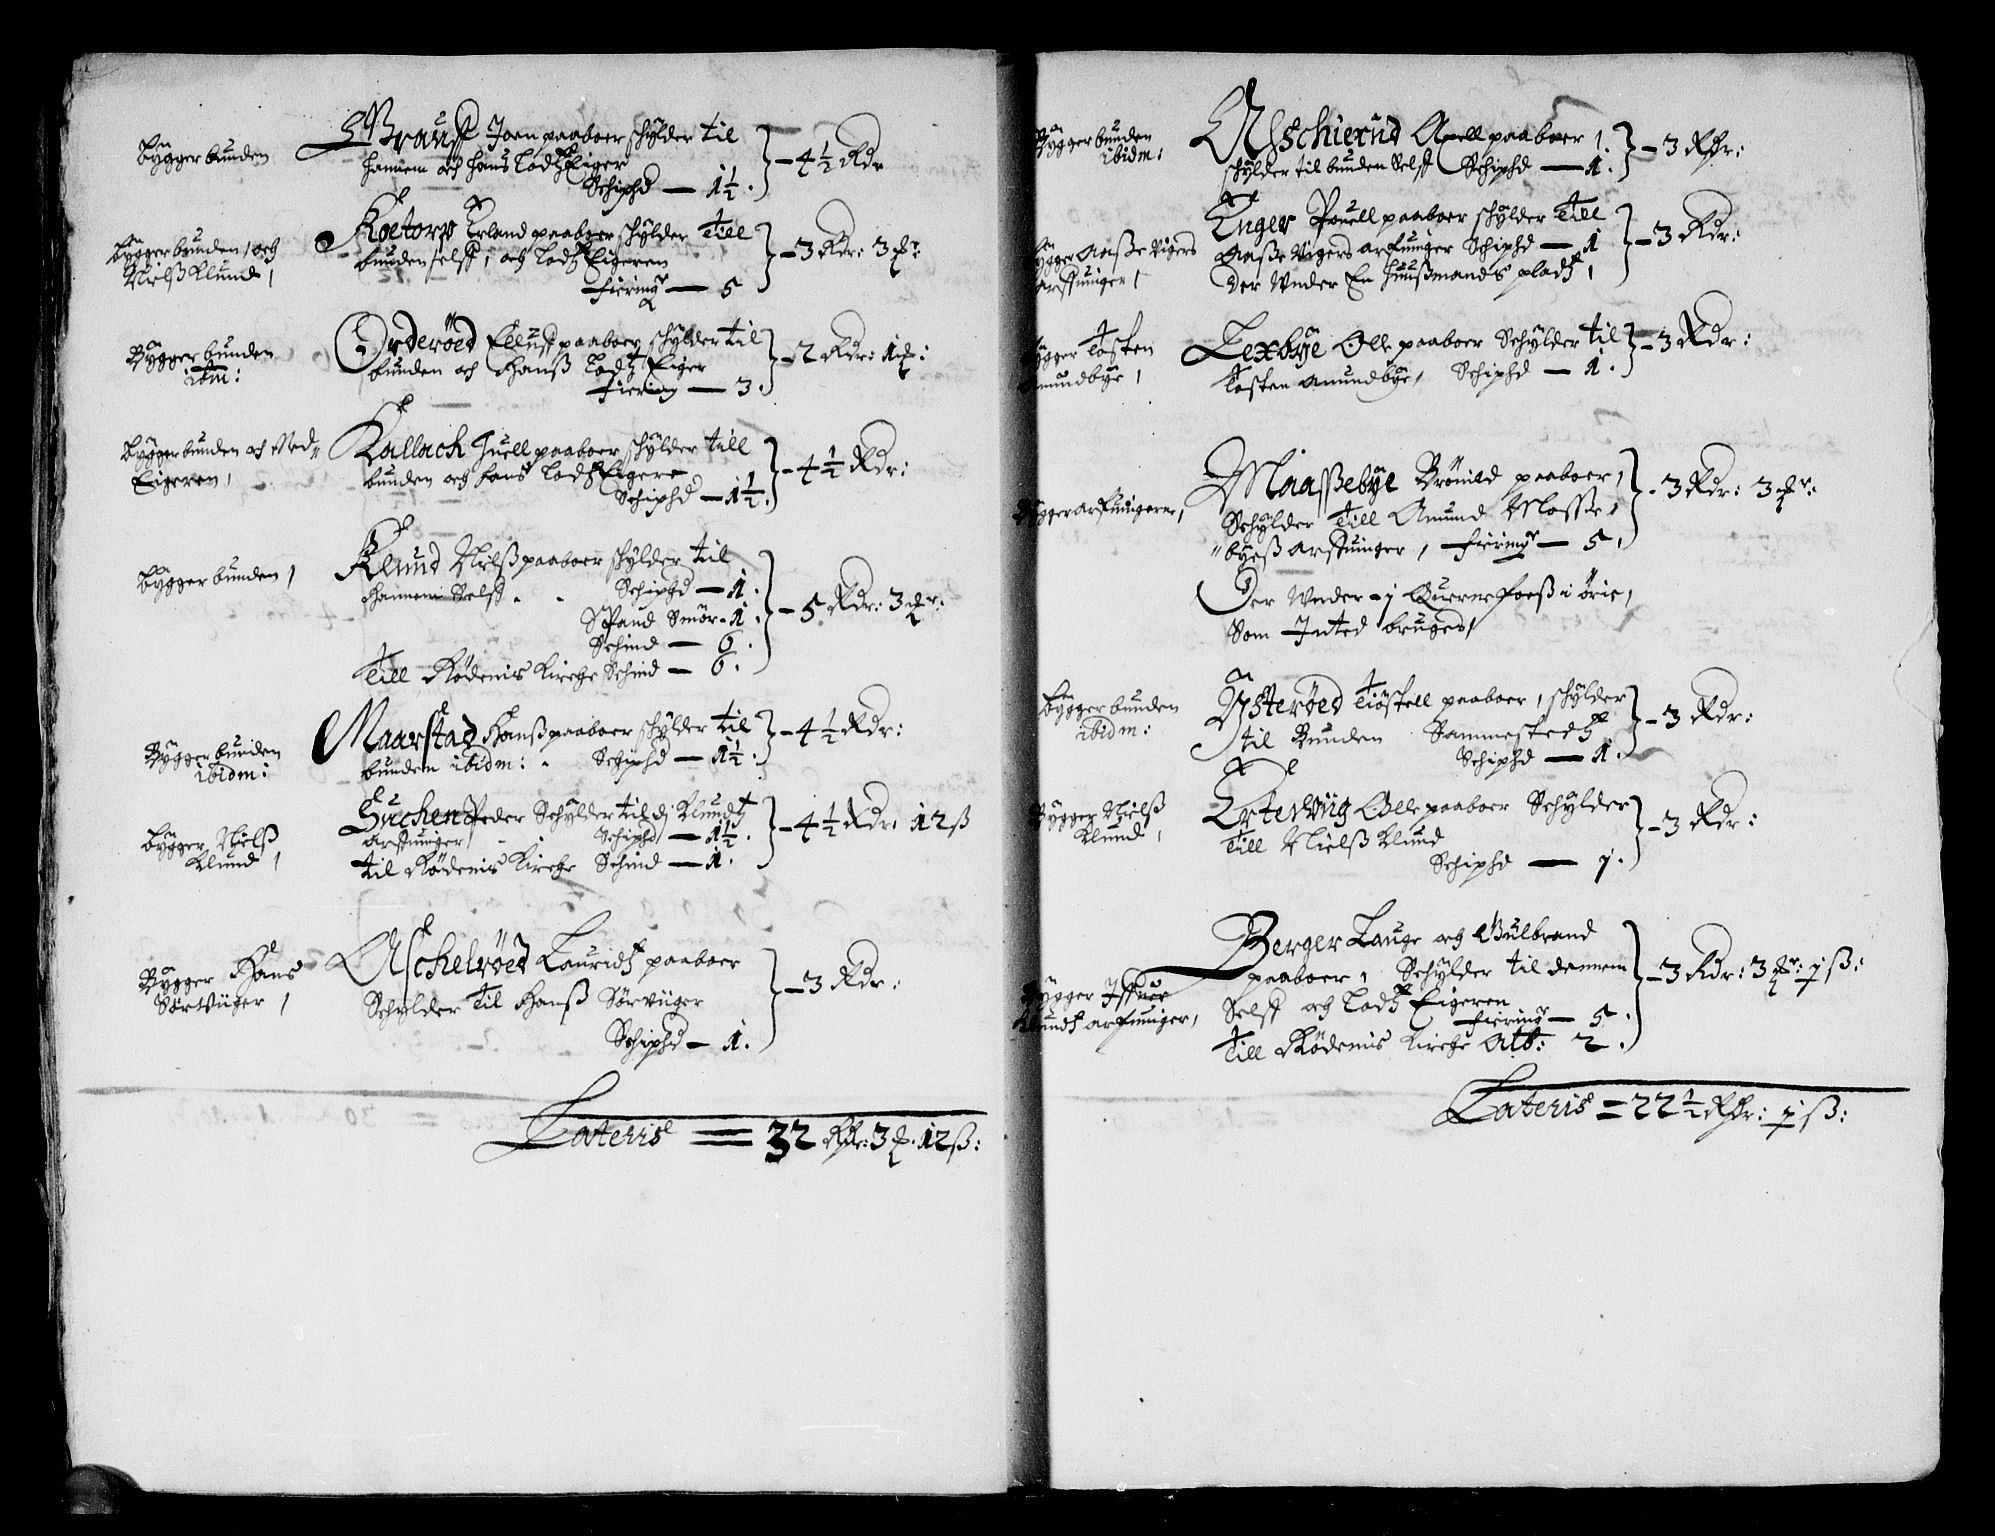 bygger bunden
Grauff Joen paaboer schylder til
hannem och hans Lodz Eiger
Schiphd — 1½. — 4½ Rdr
bygger bunden, och
Nielß Klund,
Koetorp Erland paaboer schylder till
bunden selff, och Lodz Eigeren
fiering — 5 — 3 Rdr: 3 
Bygger bunden
ibm:
Orderöed Elluff paaboer schylder til
bunden och Hanß Lodz Eiger
fiering — 3. — 2 Rdr: 1
bygger bunden och Med-
Eigeren,
Kallach Juell paaboer schylder till
bunden och hans Lodz Eigere
Schiphd — 1½. — 4½ Rdr:
bygger bunden,
Klund Nielß paaboer schylder til
Hannem Selff Schiphd — 1.
Spand Smör - 1.
Schind — 6.
Till Rödenis Kirche Schind — 6. — 5 Rdr: 3
Bygger bunden
ibidm:
Maarstad Hanß paaboer schylder til
bunden ibidm: Schiphd — 1½. — 4½ Rdr:
bygger Nielß
Klund,
Peder Schylder til Klundtz
arffuinger Schiphd — 1½.
til Rödenis Kirche Schind — 1. — 4½ Rdr: 12 ß
Bygger Hans
Sörvüger,
Aschelröed Lauridz paaboer
Schylder Til Hanß Sörvüger
Schiphd — 1. — 3 Rdr:
Lateris = 32 Rdr: 3 12 ß:
Bygger bunden
ibidm:
Aschierud Axell paaboer 1.
schylder til bunden Selff Schiphd — 1. — 3 Rdr:
bygger Aaße Vigers
arffuinger,
Enger Pouell paaboer schylder Till
Aaße Vigers arfuinger Schiphd — 1
Der Under En Huußmands pladz, — 3 Rdr:
bygger Tosten
Amundbye,
Lexbye Olle paaboer Schylder til
Tosten Amundbye, Schiphd — 1. — 3 Rdr:
Bygger arfuingerne,
Maaßebye paaboer,
Schylder Till Amund Mosse-
byeß arffuinger, fiering — 5, — 3 Rdr: 3
Der Under - 1 Querne foeß i örie,
Som Inted bruges,
bygger bunden
ibidm:
Ysteröed Tiöstell paaboer, schylder
til Bunden Sammestedz
Schiphd — 1. — 3 Rdr:
Bygger Nielß
Klund,
Ertevüg Olle paaboer Schylder
Till Nielß Klund
Schiphd — 1. — 3 Rdr:
Bygger Iffuer
Klundz arfuinger,
Berger Lauge och Gulbrand
paaboer, Schylder til dennem
Selff och Lodz Eigeren
fiering — 5.
Till Rödenis Kirche alb: 2. — 3 Rdr: 3 1 ß:
Lateris = 22½ Rdr: 1 ß: